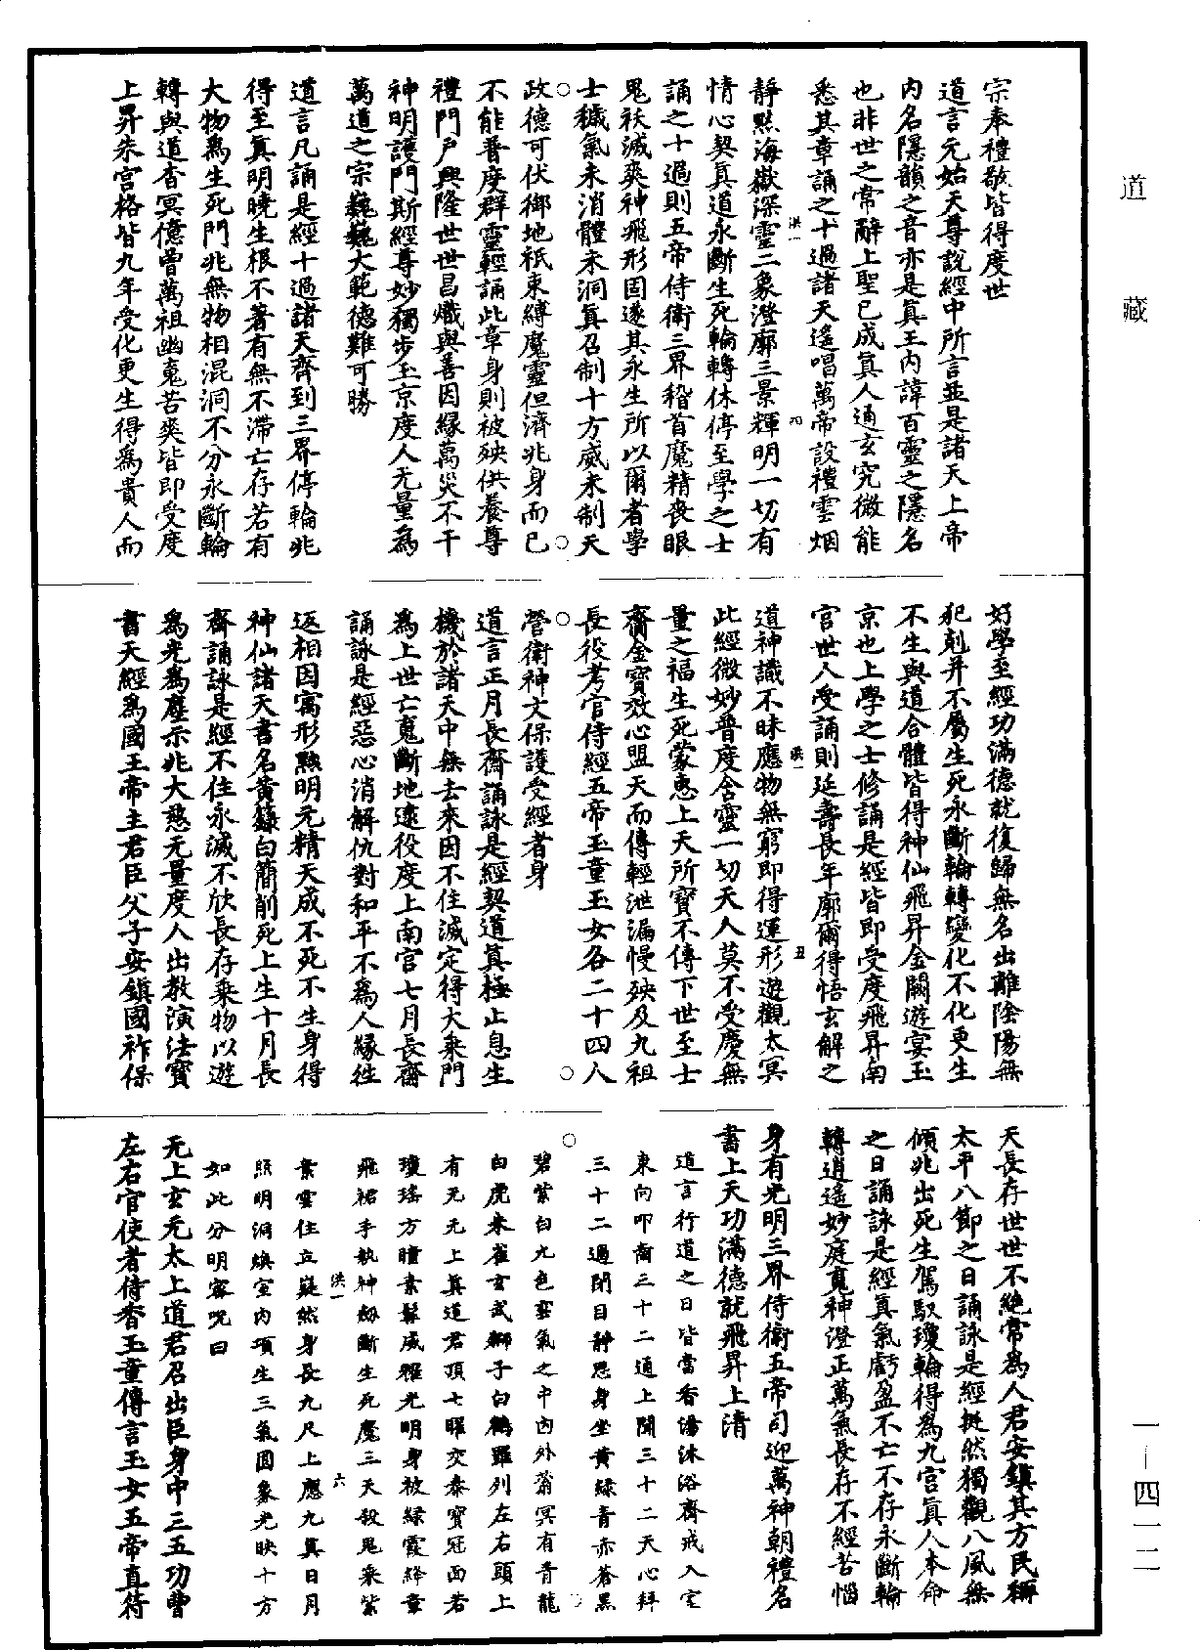 道藏
宗奉禮敬皆得度世
道言元始天尊說經中所言並是諸天上帝
內名隱韻之音亦是眞王內諱百靈之隱名
也非世之常辭上聖已成眞人通玄究微能
悉其章誦之十過諸天遙唱萬帝設禮雲烟
洪一 四
靜默海嶽深靈二象澄廓三景輝明一切有
情心契眞道永斷生死輪轉休停至學之士
誦之十過則五帝侍衛三界稽首魔精喪眼
鬼祅滅爽神飛形固遂其永生所以爾者學
士穢氣未消體未洞眞召制十方威未制天
政德可伏御地祇束縛魔靈但濟兆身而已
不能普度群靈輕誦此章身則被殃供養尊
禮門戶興隆世世昌熾與善因緣萬災不干
神明護門斯經尊妙獨步玉京度人无量為
萬道之宗巍巍大範德難可勝
道言凡誦是經十過諸天齊到三界停輪兆
得至眞明曉生根不著有無不滯亡存若有
大物為生死門兆無物相混洞不分永斷輪
轉與道杳冥億曾萬祖幽魂苦爽皆即受度
上昇朱宮格皆九年受化更生得為貴人而
好學至經功滿德就復歸無名出離陰陽無
犯剋并不屬生死永斷輪轉變化不化更生
不生與道合體皆得神仙飛昇金闕遊宴玉
京也上學之士修誦是經皆即受度飛昇南
宮世人受誦則延壽長年廓爾得悟玄解之
洪一 五
道神識不昧應物無窮即得運形遊觀太冥
此經微妙普度含靈一切天人莫不受慶無
量之福生死蒙惠上天所寶不傳下世至士
齎金寶效心盟天而傳輕泄漏慢殃及九祖
長役考官侍經五帝玉童玉女各二十四人
營衛神文保護受經者身
道言正月長齋誦詠是經契道眞極止息生
機於諸天中無去來因不住滅定得大乘門
為上世亡魂斷地逮役度上南宮七月長齋
誦詠是經惡心消解仇對和平不為人緣往
返相因寓形默明元精天成不死不生身得
神仙諸天書名黃籙白簡削死上生十月長
齋誦詠是經不住永滅不欣長存乘物以遊
為光為塵示兆大慈无量度人出教演法寶
書天經為國王帝主君臣父子安鎮國祚保
天長存世世不絕常為人君安鎮其方民稱
太平八節之日誦詠是經挺然獨觀八風無
傾兆出死生駕馭瓊輪得為九宮眞人本命
之日誦詠是經眞氣虧盈不亡不存永斷輪
轉逍遙妙庭魂神澄正萬氣長存不經苦惱
身有光明三界侍衛五帝司迎萬神朝禮名
書上天功滿德就飛昇上清
道言行道之日皆當香湯沐浴齋戒入室
東向叩齒三十二通上聞三十二天心拜
三十二過閉目靜思身坐黃綠青赤蒼黑
碧紫白九色雲氣之中內外蓊冥有青龍
白虎朱雀玄武獅子白鶴羅列左右頭上
有无无上眞道君頂七曜交泰寶冠面若
瓊瑤方瞳素鬢威耀光明身被綠霞絳章
飛裙手執神劒斷生死魔三天殺鬼乘紫
洪一 六
素雲住立嶷然身長九尺上應九眞日月
照明洞煥室內項生三氣圓象光映十方
如此分明密呪曰
无上玄元太上道君召出臣身中三五功曹
左右官使者侍香玉童傳言玉女五帝直符
一—四一二